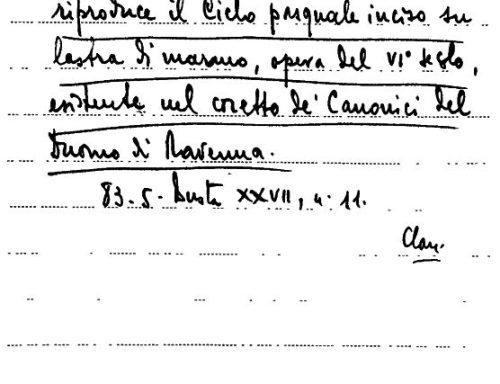 riproduce il Ciclo pasquale inciso su
lastra di marmo, opera del VI° secolo,
esistente nel coretto de' Canonici del
Duomo di Ravenna.
83.5. Busta XXVII, n. 11.